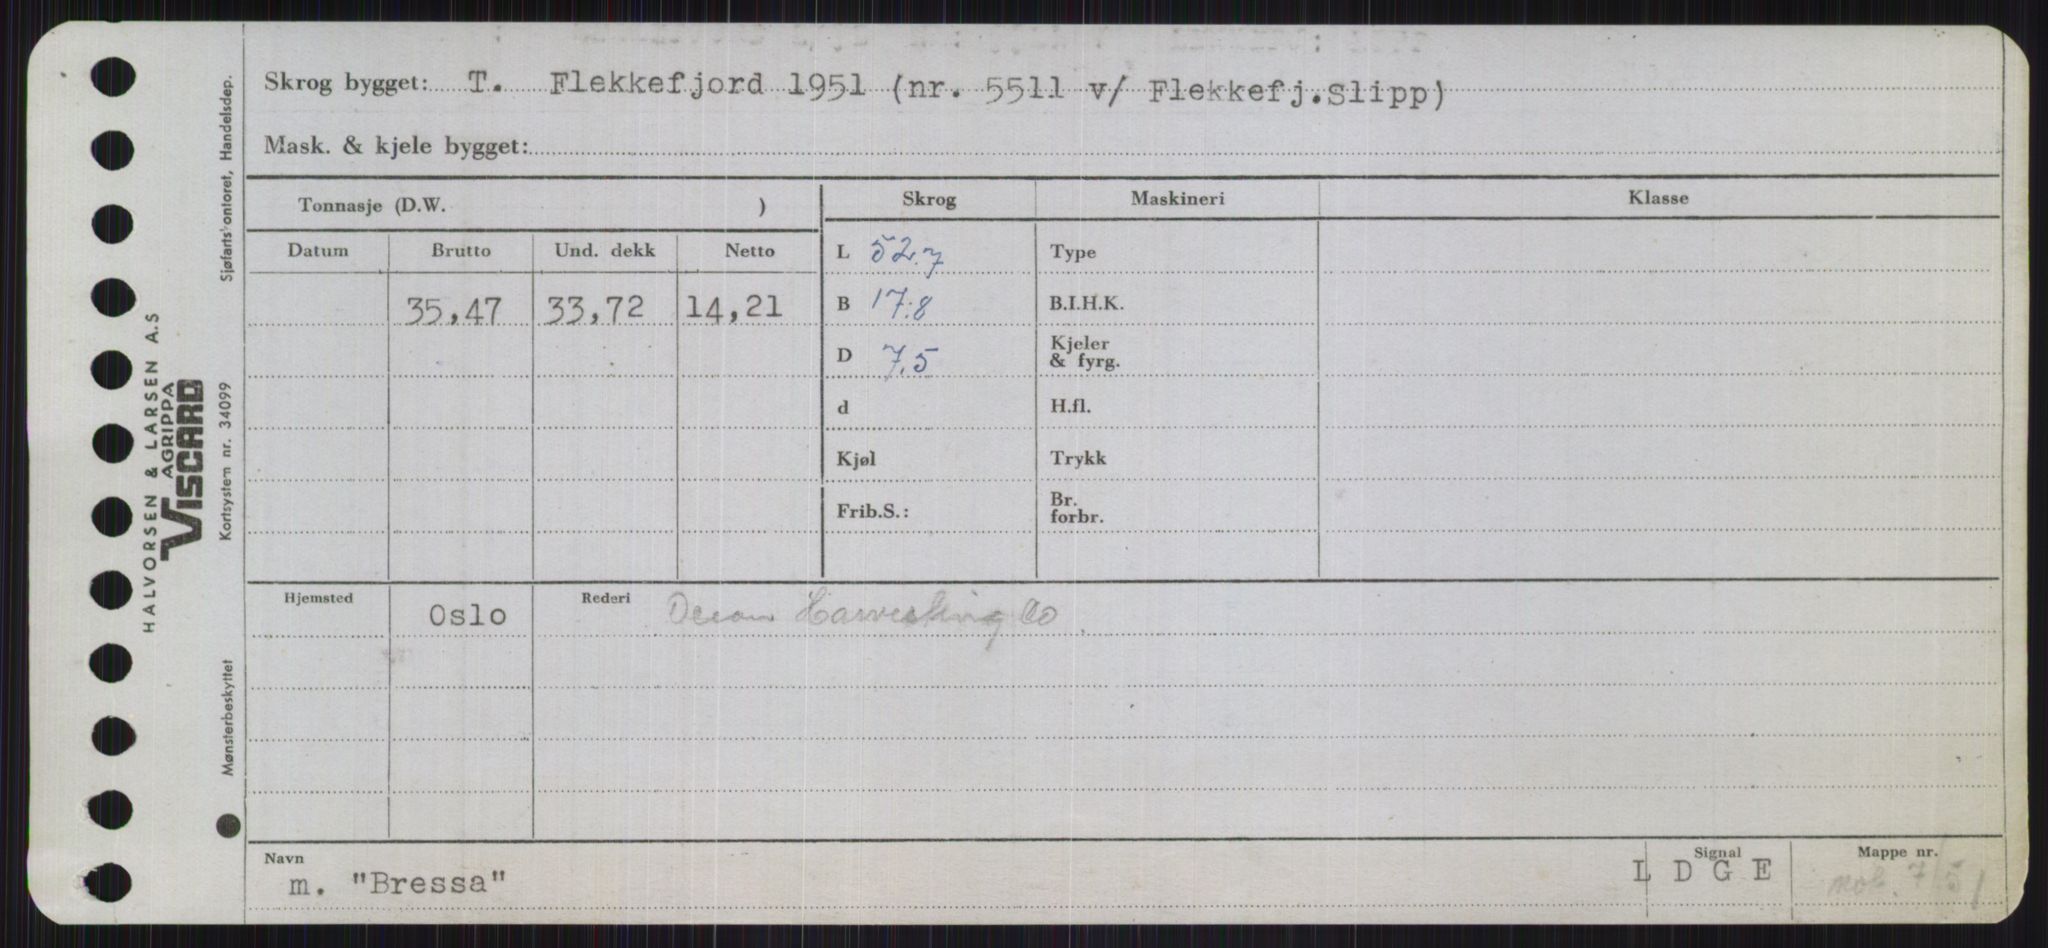 Skrog bygget: T. Flekkefjord 1951 (nr. 5511 v/ Flekkefj.Slipp)
Mask. & kjele bygget:
Tonnasje (D.W. )
Skrog
Maskineri
Klasse
Datum
Brutto
Und. dekk
Netto
35,47
33,72
14,21
L 52.7
B 17.8
D 7,5
d
Kjøl
Frib.S.:
Type
B.I.H.K.
Kjeler
& fyrg.
H.fl.
Trykk
Br.
forbr.
Hjemsted
Oslo
Rederi
Ocean Harvesting Co
Navn
m. "Bressa"
Signal
L D G E
Mappe nr.
HALVORSEN & LARSEN A.S
AGRIPPA
VISCARD
Sjøfartskontoret, Handelsdep.
Kortsystem nr. 34099
Mønsterbeskyttet